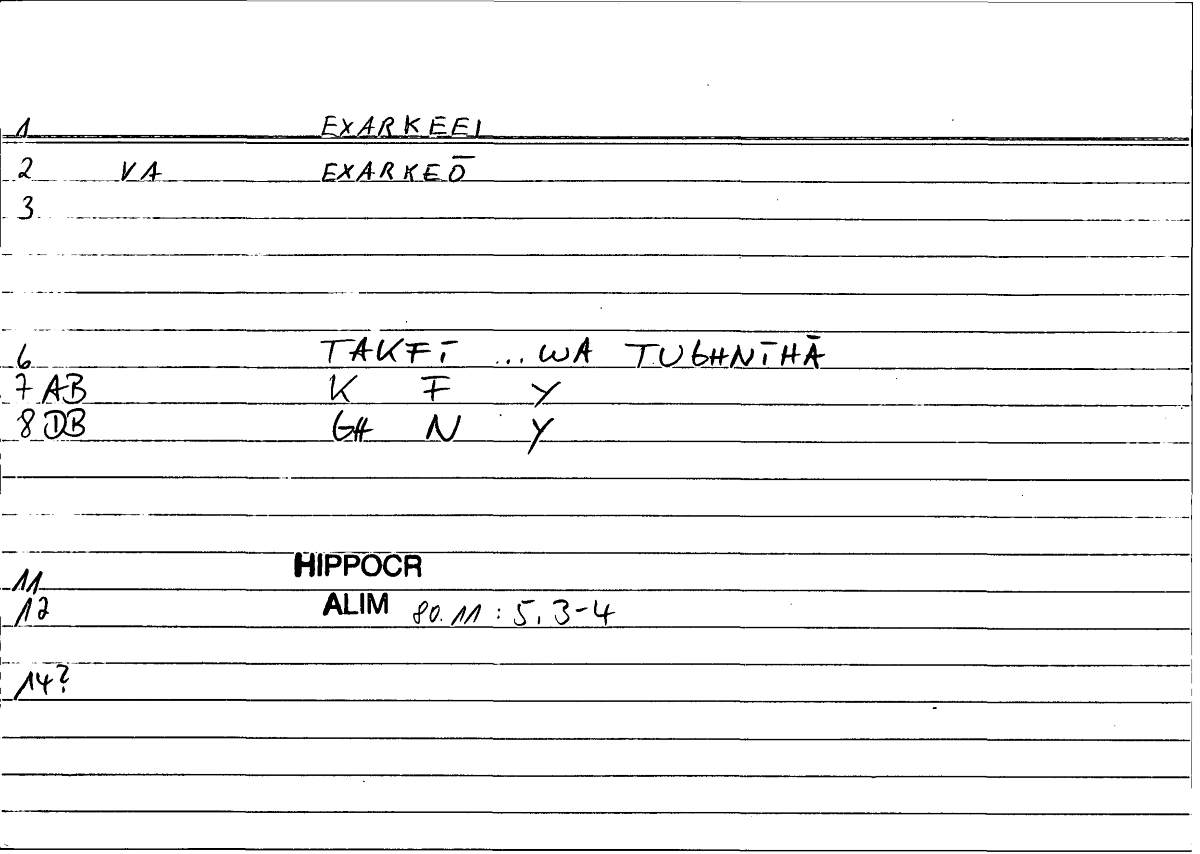 1 EXARKEEI
2 VA EXARKEŌ
3
6 TAKFĪ ...WA TUGHNĪHĀ
7 AB K F Y
8 DB GH N Y
11 HIPPOCR
12 ALIM 80.11 : 5, 3-4
14?